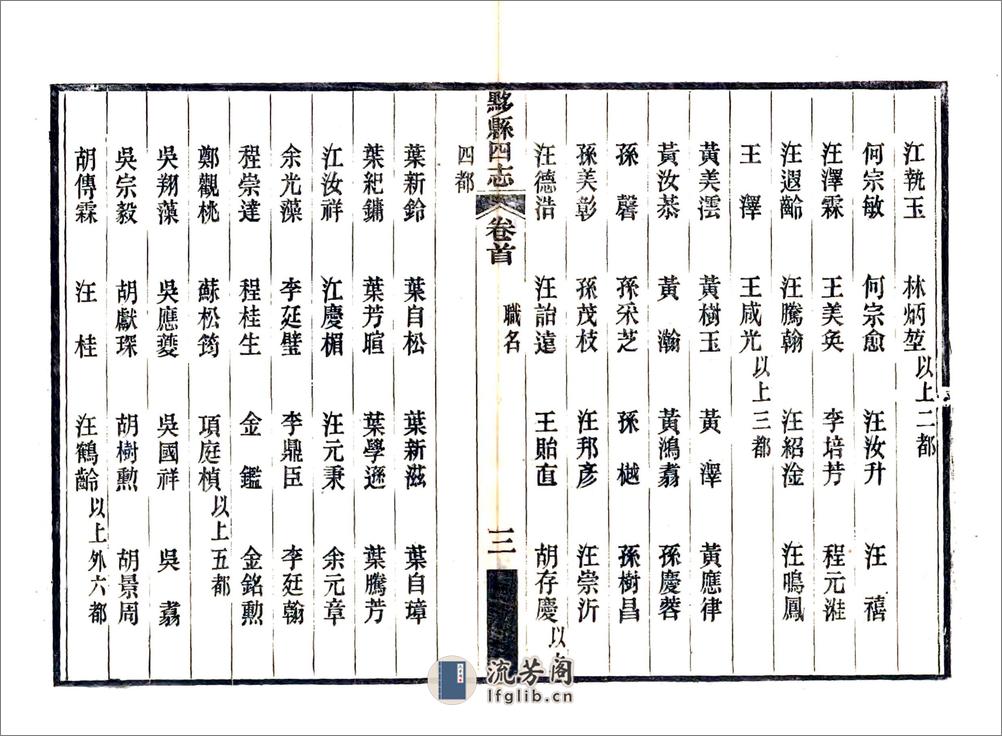 江執玉 林炳堃以上二都
何宗敏 何宗愈 汪汝升 汪禧
汪澤霖 王美奐 李培芳 程元溎
汪遐齡 汪騰翰 汪紹淦 汪鳴鳳
王澤 王咸光以上三都
黃美澐 黃樹玉 黃澤 黃應律
黃汝恭 黃瀚 黃鴻翥 孫慶蓉
孫馨 孫采芝 孫樾 孫樹昌
孫美彰 孫茂枝 汪邦彥 汪崇沂
汪德浩 汪詒遠 王貽直 胡存慶以
黟縣四志 卷首 職名 三
四都
葉新鈴 葉自松 葉新滋 葉自璋
葉紀鏞 葉芳暄 葉學遜 葉騰芳
江汝祥 江慶楣 汪元秉 余元章
余光藻 李廷璧 李鼎臣 李廷翰
程崇達 程桂生 金鑑 金銘勲
鄭觀桃 蘇松筠 項庭楨以上五都
吳翔藻 吳應夔 吳國祥 吳翥
吳宗毅 胡獻琛 胡樹勲 胡景周
胡傳霖 汪桂 汪鶴齡以上外六都
流芳閣
lfglib.cn